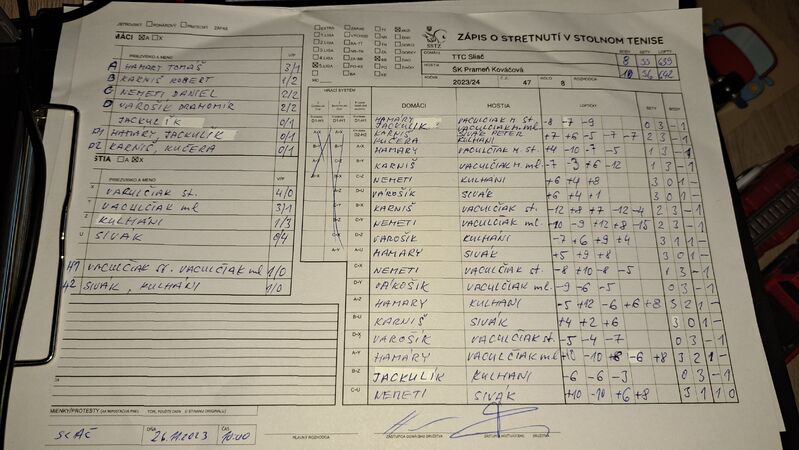 JETROVSKÝ POHÁROVÝ PRIATEĽSKÝ ZÁPAS
MÁCI A X
PRIEZVISKO A MENO V/P
A HAMARY TOMÁŠ 3/1
B KARNIŠ ROBERT 1/2
C NEMETI DANIEL 2/2
D VAROŠIK DRAHOMIR 2/2
JACKULÍK 0/1
D1 HAMARY, JACKULÍK 0/1
D2 KARNIŠ, KUČERA 0/1
STIA A X
PRIEZVISKO A MENO V/P
X VACULČIAK st. 4/0
Y VACULČIAK ml 3/1
Z KULHÁNI 1/3
U SIVÁK 0/4
H1 VACULČIAK st. VACULČIAK ml 1/0
H2 SIVÁK, KULHANI 1/0
MIENKY/PROTESTY
SLIAČ
DŇA 26.11.2023
ČAS 10:00
SSTZ
ZÁPIS O STRETNUTÍ V STOLNOM TENISE
DOMÁCI TTC Sliač
HOSTIA SK Prameň Kováčová
ROČNÍK 2023/24 Č.Z. 47 KOLO 8 ROZHODCA
BODY SETY LOPTY
8 33 639
10 36 642
HRACÍ SYSTÉM
DOMÁCI HOSTIA LOPTIČKY SETY BODY
HAMARY JACKULÍK VACULČIAK M. st. VACULČIAK M. ml -8 -7 -9 0 3 - 1
KARNIŠ KUČERA SIVÁK PETER KULHANI +7 +6 -5 -7 -7 2 3 - 1
HAMARY VACULČIAK M. st. +4 -10 -7 -5 1 3 - 1
KARNIŠ VACULČIAK M. ml. -7 -3 +6 -12 1 3 - 1
NEMETI KULHANI +6 +4 +8 3 0 1 -
VAROŠIK SIVÁK +6 +4 +1 3 0 1 -
KARNIŠ VACULČIAK st. -12 +8 +7 -12 -4 2 3 - 1
NEMETI VACULČIAK ml. -10 -9 +12 +8 -15 2 3 - 1
VAROŠIK KULHANI -7 +6 +9 +4 3 1 1 -
HAMARY SIVÁK +5 +9 +8 3 0 1 -
C-X NEMETI VACULČIAK st. -8 +10 -8 -5 1 3 - 1
D-Y VAROŠIK VACULČIAK ml. -9 -6 -5 0 3 - 1
A-Z HAMARY KULHANI -5 +12 -6 +6 +8 3 2 1 -
B-U KARNIŠ SIVÁK +4 +2 +6 3 0 1 -
D-X VAROŠIK VACULČIAK st. -5 -4 -7 0 3 - 1
A-Y HAMARY VACULČIAK ml +10 -10 +8 -6 +8 3 2 1 -
B-Z JACKULÍK KULHANI -6 -6 -3 0 3 - 1
C-U NEMETI SIVÁK +10 -10 +6 +8 3 1 1 0
HLAVNÝ ROZHODCA ZÁSTUPCA DOMÁCEHO DRUŽSTVA ZÁSTUPCA HOSŤUJÚCEHO DRUŽSTVA